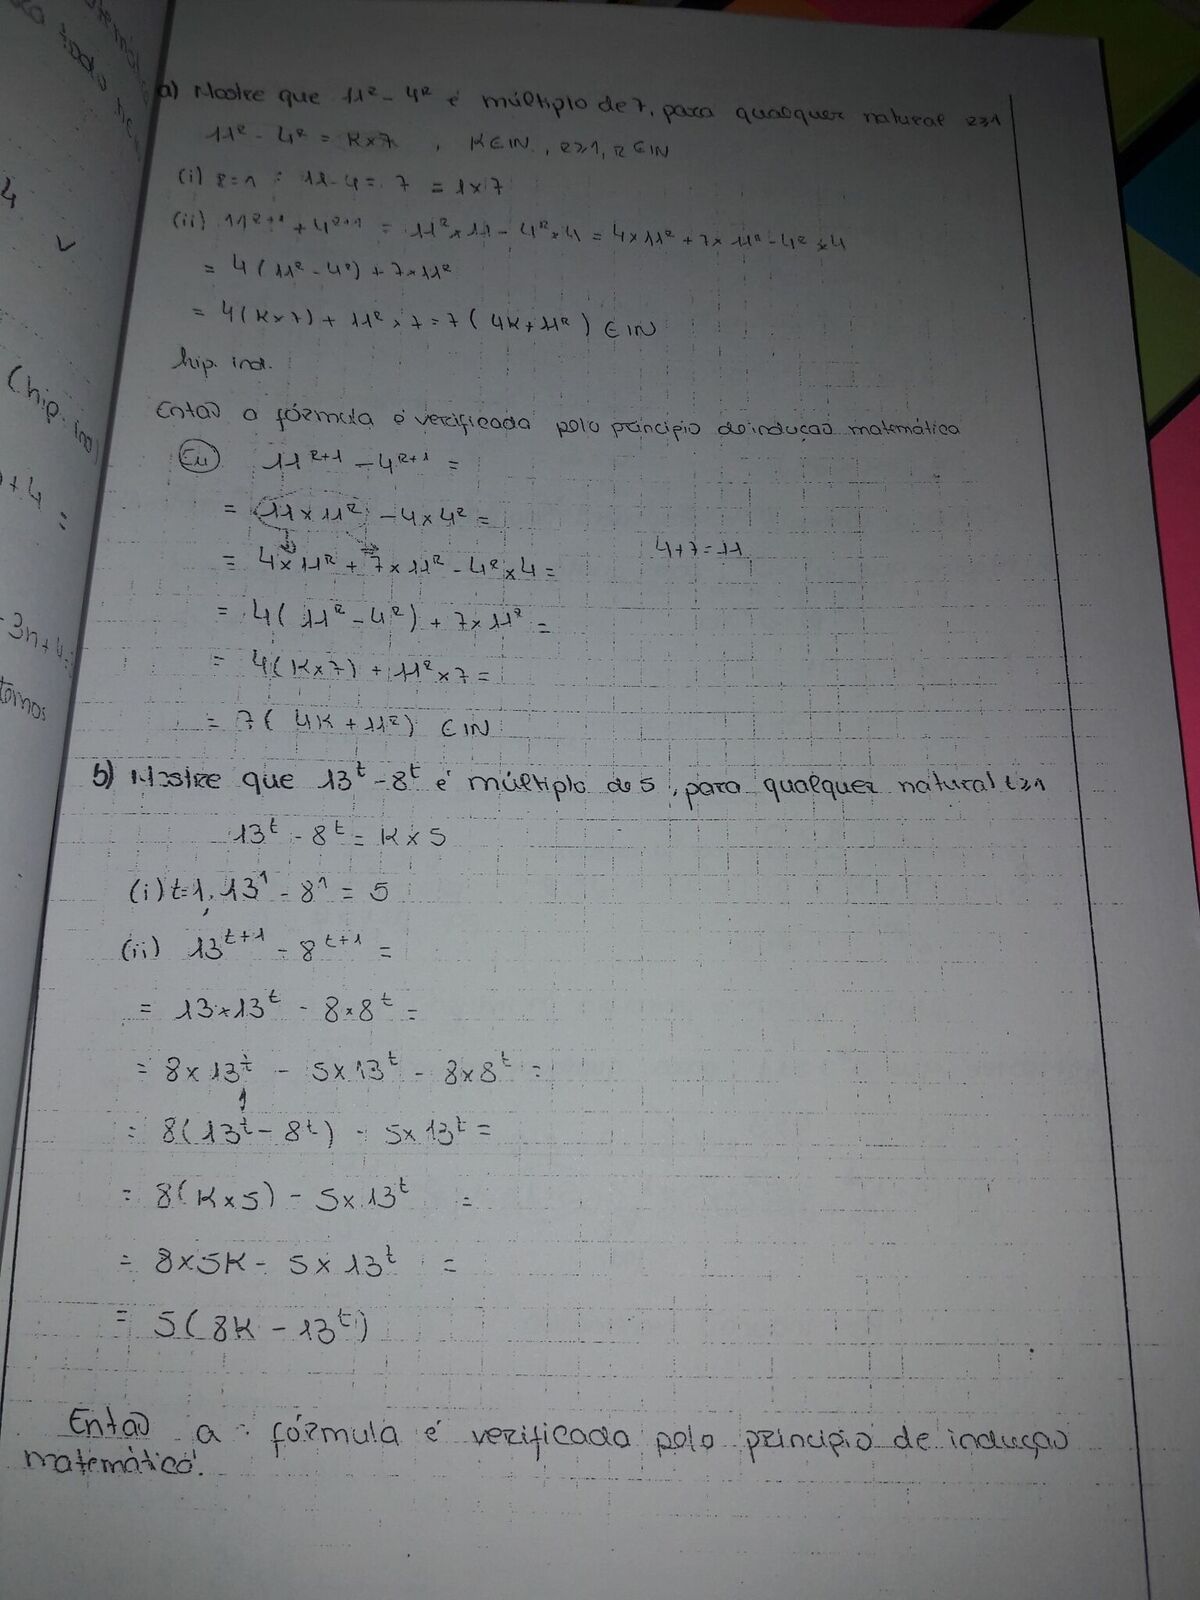 a) Mostre que 11^r - 4^r é múltiplo de 7, para qualquer natural r≥1
11^r - 4^r = K×7 , K∈IN, r≥1, r∈IN
(i) r=1 : 11-4= 7 = 1×7
(ii) 11^r+1 + 4^r+1 = 11^r×11 - 4^r×4 = 4×11^r + 7×11^r - 4^r×4
= 4(11^r - 4^r) + 7×11^r
= 4(K×7) + 11^r×7 = 7(4K+11^r) ∈IN
hip. ind.
Então a fórmula é verificada pelo princípio de indução matemática
Eu 11^r+1 - 4^r+1 =
= 11×11^r - 4×4^r =
= 4×11^r + 7×11^r - 4^r×4 = 4+7=11
= 4(11^r - 4^r) + 7×11^r =
= 4(K×7) + 11^r×7 =
= 7(4K+11^r) ∈IN
b) Mostre que 13^t - 8^t é múltiplo de 5, para qualquer natural t≥1
13^t - 8^t = K×5
(i) t=1, 13^1 - 8^1 = 5
(ii) 13^t+1 - 8^t+1 =
= 13×13^t - 8×8^t =
= 8×13^t - 5×13^t - 8×8^t =
= 8(13^t - 8^t) - 5×13^t =
= 8(K×5) - 5×13^t =
= 8×5K - 5×13^t =
= 5(8K - 13^t)
Então a fórmula é verificada pelo princípio de indução
matemática.
4
(hip. ind)
+4 =
3n+4=
tomos